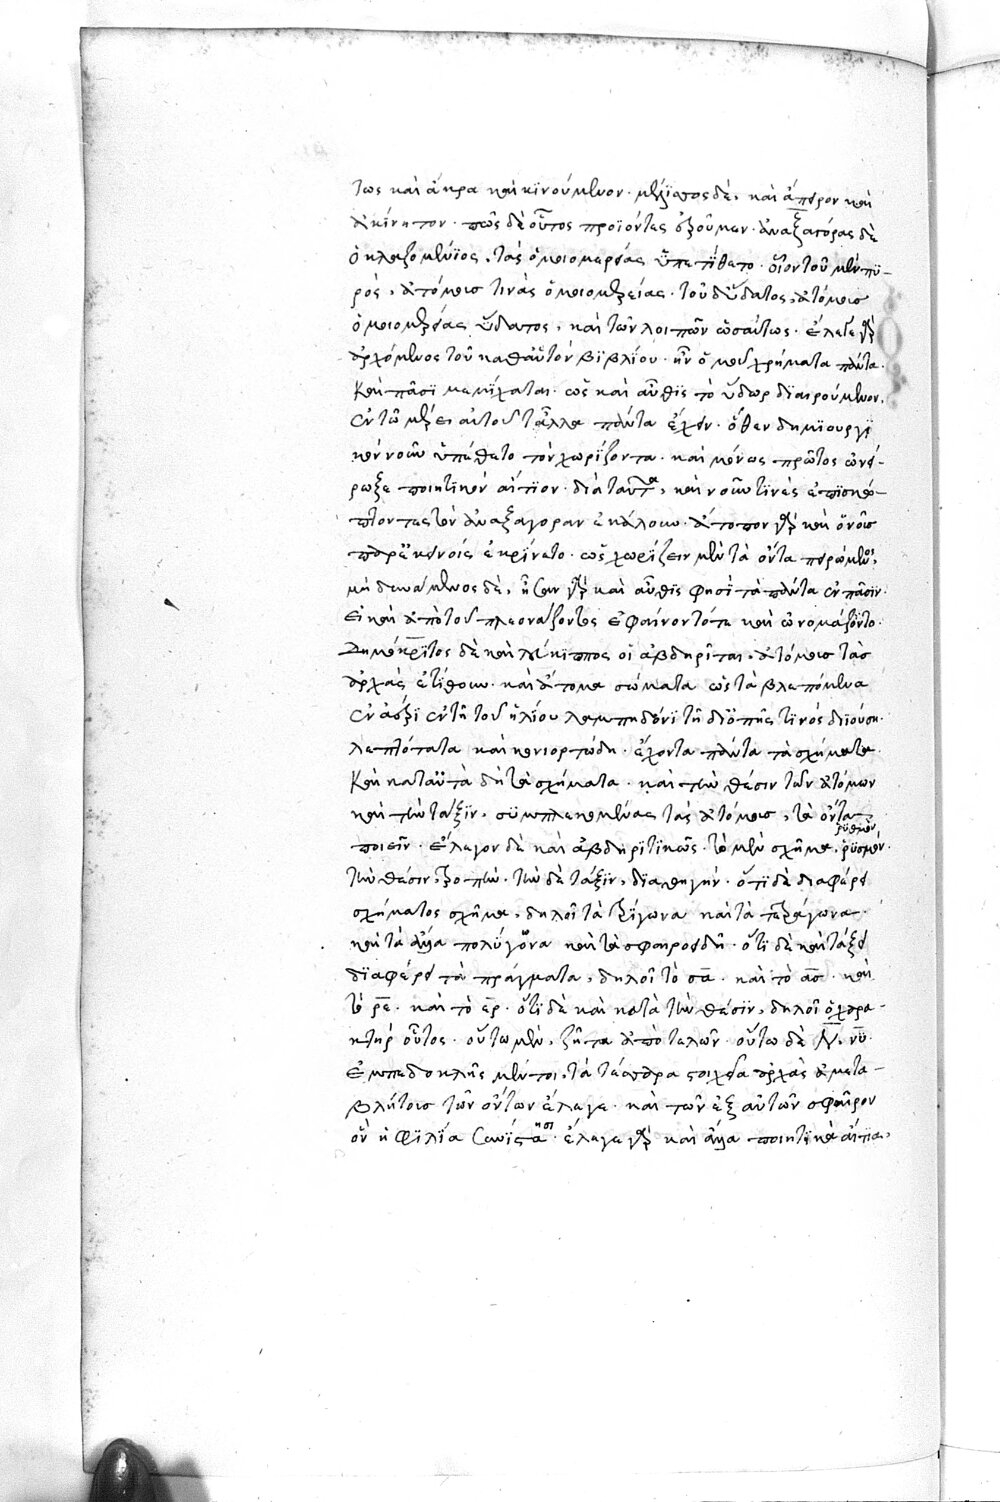 τως καὶ ἄκρα καὶ κινούμενον· μέλισσος δὲ, καὶ ἄπειρον καὶ
ἀκίνητον· πῶς δὲ οὗτος προϊόντες δείξομεν· ἀναξαγόρας δὲ
ὁ κλαζομένϊος, τὰς ὁμοιομερείας ὑπετίθετο· οἷον τοῦ μὲν πυ-
ρός, ἀτόμους τινὰς ὁμοιομερείας· τοῦ δ' ὕδατος, ἀτόμους
ὁμοιομερείας ὕδατος, καὶ τῶν λοιπῶν ὡσαύτως· ἔλεγε γὰρ
ἀρχόμενος τοῦ καθ' αὑτὸν βιβλίου· ἦν ὁμοῦ χρήματα πάντα·
καὶ πᾶσϊ μεμῖχαται· ὡς καὶ αὖθις τὸ ὕδωρ διαιρούμενον,
ἐν τῷ μέρει αὐτοῦ τἆλλα πάντα ἔχειν· ὅθεν δημϊουργϊ
κὸν νοῦν ὑπέθετο τὸν χωρίζοντα· καὶ μόνος πρῶτος ὠνεί-
ρωξε ποιητικὸν αἴτϊον· διὰ ταῦτα, καὶ νοῦν τινὲς ἐπϊσκώ-
πτοντες τὸν ἀναξαγόραν ἐκάλουν· ἄτοπον γὰρ καὶ ὁ νοῦς
παρ' ἐκείνοις ἐκρίνετο· ὡς χωρίζειν μὲν τὰ ὄντα πειρώμενος,
μὴ δυνάμενος δὲ, ἦσαν γὰρ καὶ αὖθις φησὶ τὰ πάντα ἐν πᾶσιν·
εἰ καὶ ἀπὸ τοῦ πλεονάζοντος ἐφαίνοντό τε καὶ ὠνομάζοντο·
Δημόκρϊτος δὲ καὶ λεύκιππος οἱ ἀβδηρῖται, ἀτόμους τὰς
ἀρχὰς ἐτίθουν· καὶ ἄτομα σώματα ὡς τὰ βλεπόμενα
ἐν ἀέρι ἐν τῇ τοῦ ἡλίου λαμπηδόνϊ τῇ δι' ὀπῆς τινὸς διϊούσῃ·
λεπτότατα καὶ κονιορτώδη· ἔχοντα πάντα τὰ σχήματα·
καὶ κατ' αὐτὰ δὴ τὰ σχήματα· καὶ τὴν θέσιν τῶν ἀτόμων
καὶ τὴν τάξϊν, συμπλεκομένας τὰς ἀτόμους, τὰ ὄντα
ποιεῖν· ἔλεγον δὲ καὶ ἀβδηριτικῶς· τὸ μὲν σχῆμα, ῥυσμόν·
ῥυθμὸν
τὴν θέσιν, τροπήν· τὴν δὲ τάξϊν, διαθηγήν· ὅτϊ δὲ διαφέρει
σχήματος σχῆμα, δηλοῖ τὰ τρίγωνα καὶ τὰ τετράγωνα·
καὶ τὰ ἄλλα πολύγωνα καὶ τὰ σφαιροειδῆ· ὅτϊ δὲ καὶ τάξει
διαφέρει τὰ πράγματα, δηλοῖ τὸ σα· καὶ τὸ ας· καὶ
τὸ ρε· καὶ τὸ ερ· ὅτϊ δὲ καὶ κατὰ τὴν θέσϊν, δηλοῖ ὁ χαρα-
κτὴρ οὗτος· οὕτω μὲν, ζῆτα ἀποτελῶν· οὕτω δὲ Ν, νῦ·
Ἐμπεδοκλῆς μέντοι, τὰ τέσσαρα στοιχεῖα ἀρχὰς ἀμετα-
βλήτους τῶν ὄντων ἔλεγε· καὶ τῶν ἐξ αὐτῶν σφαῖρον
ὃν ἡ φϊλία συνίστησι· ἔλεγε γὰρ καὶ ἄλλα ποιητϊκὰ αἴτια,